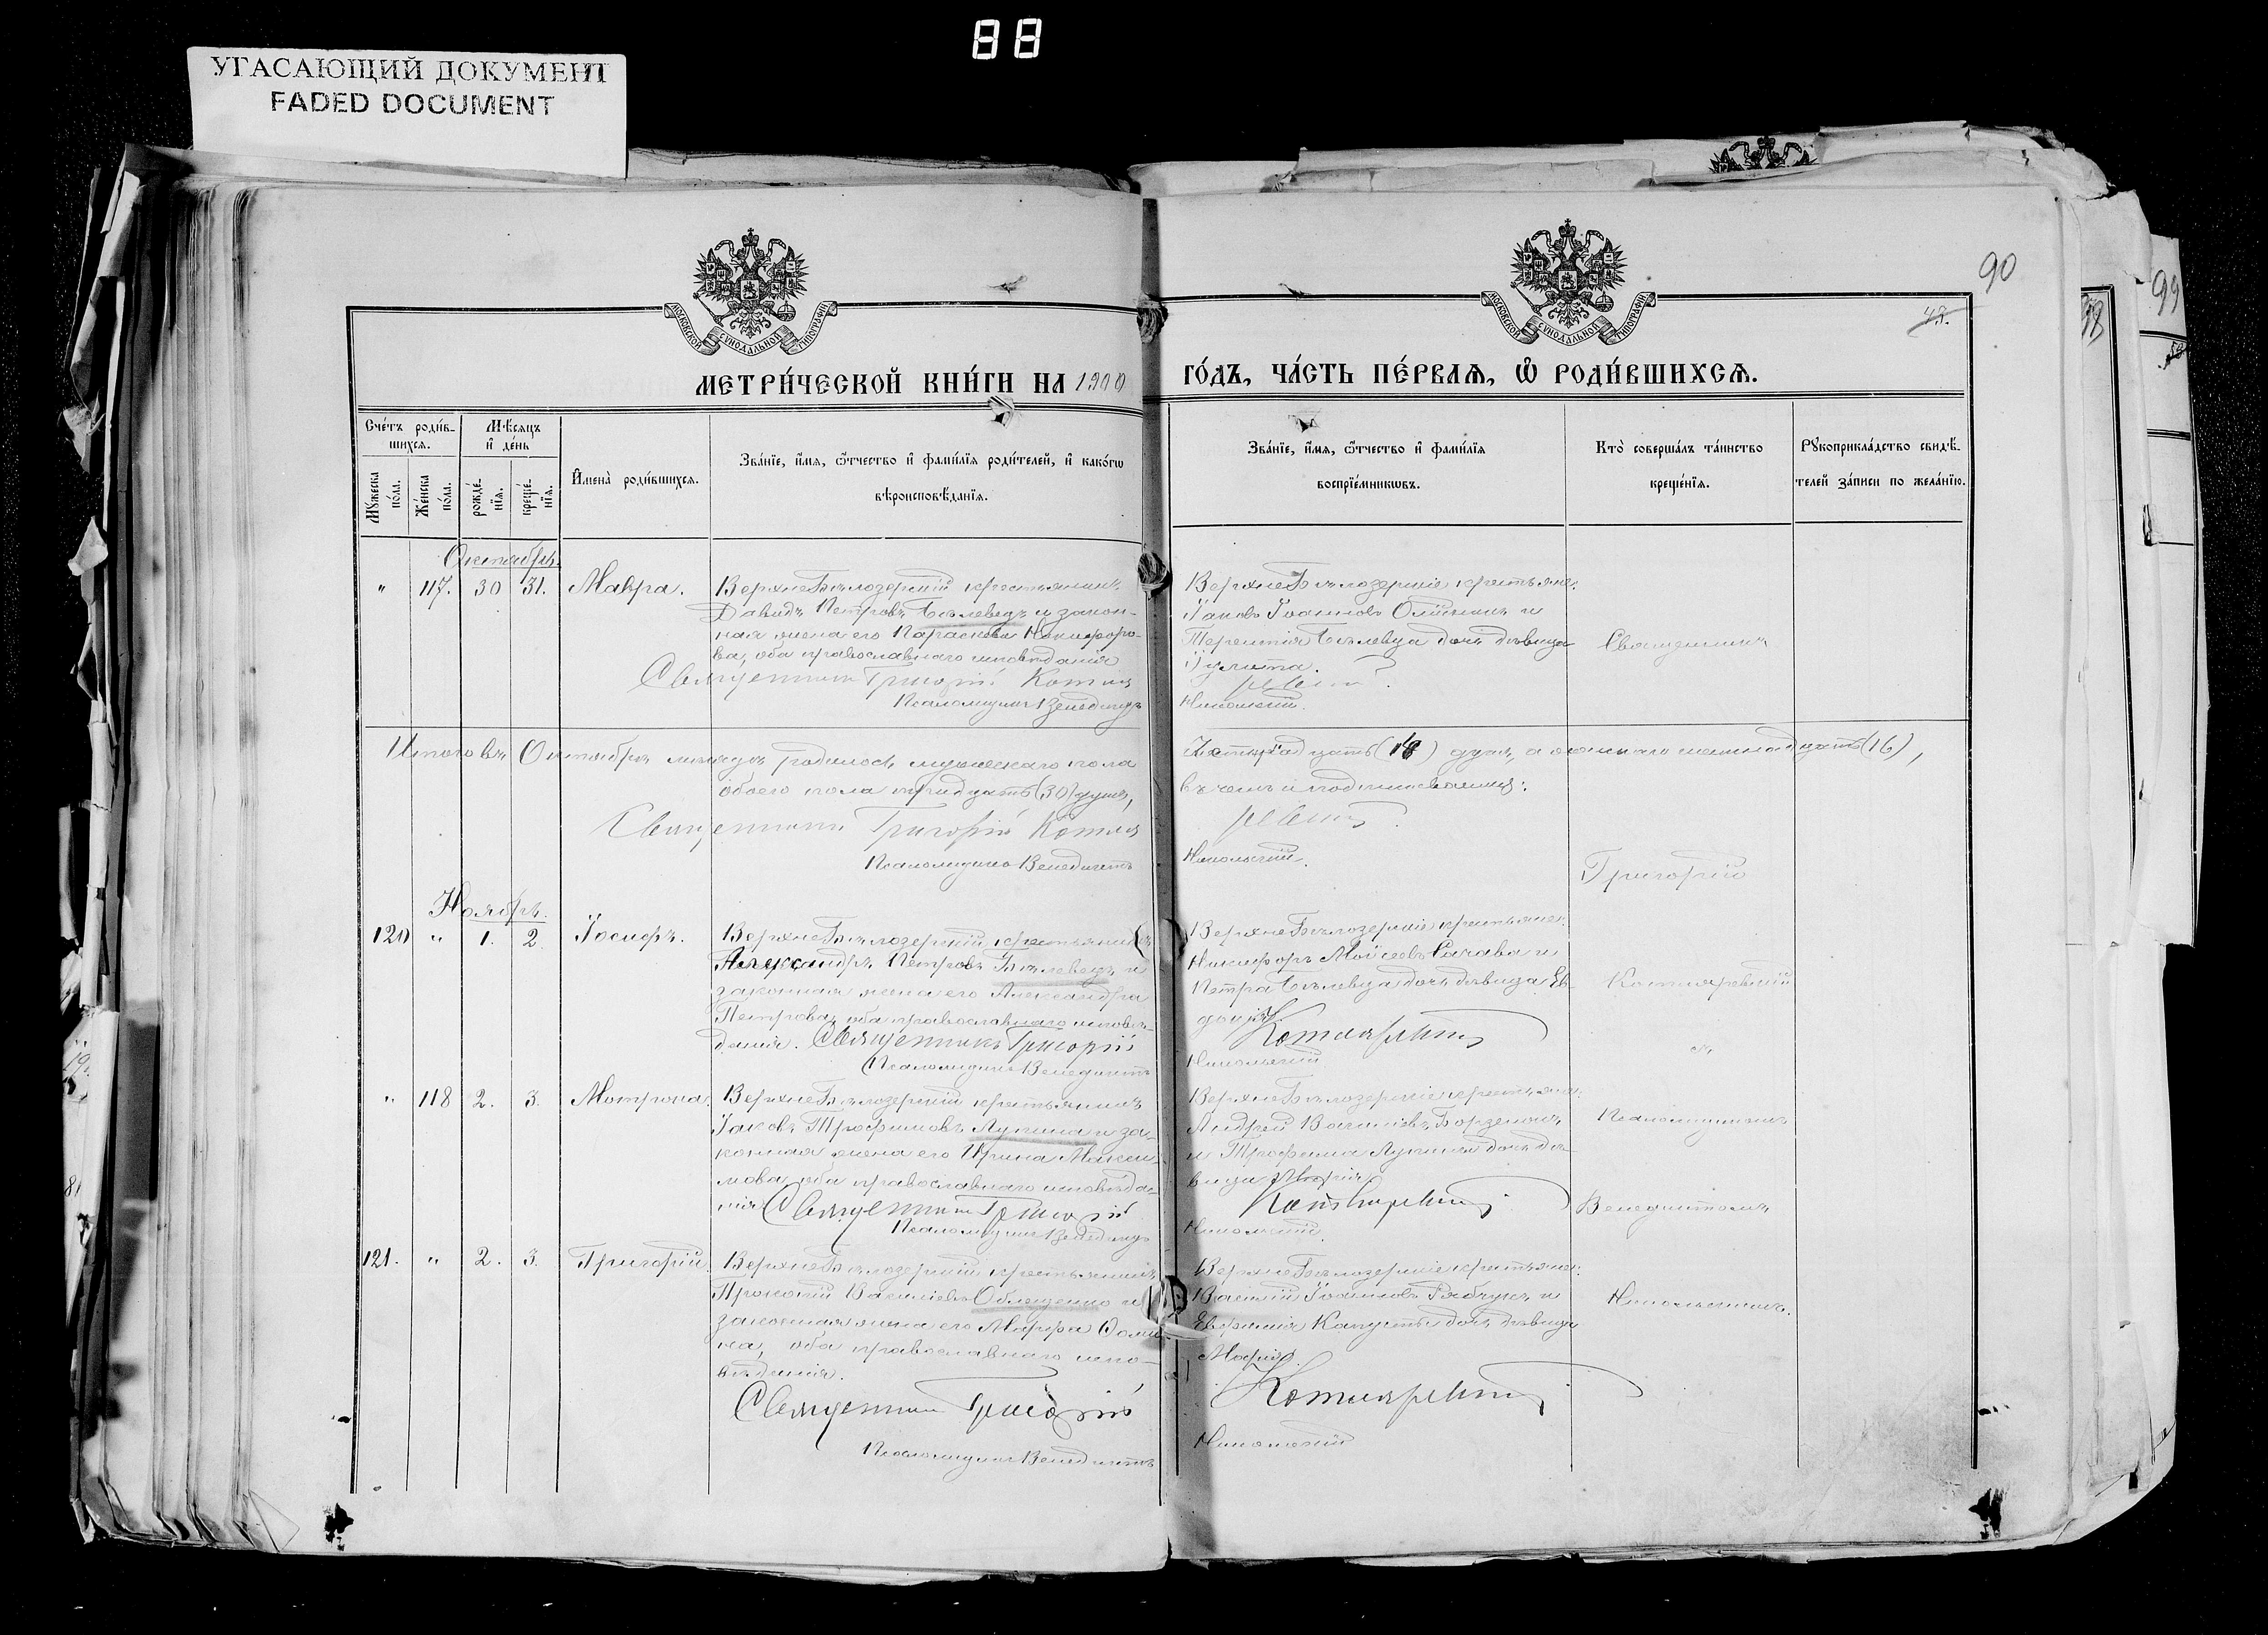 88
УГАСАЮЩИЙ ДОКУМЕНТ
FADED DOCUMENT
90
99
98
МОСКОВСКОЙ СѴНОДАЛЬНОЙ ТИПОГРАФІИ
МОСКОВСКОЙ СѴНОДАЛЬНОЙ ТИПОГРАФІИ
МЕТРИ́ЧЕСКОЙ КНИ́ГИ НА 1900
ГО́ДЪ, ЧА́СТЬ ПЕ́РВАѦ, Ѽ РОДИ́ВШИХСѦ.
Сче́тъ роди́вшихсѧ.
Мꙋжеска по́ла.
Же́нска по́ла.
Мѣ́сѧцъ и҆ де́нь
рожде́нїѧ.
креще́нїѧ.
И҆мена̀ роди́вшихсѧ.
Зва́нїе, и҆́мѧ, ѻ҆́тчество и҆ фами́лїѧ роди́телей, и҆ како́гѡ
вѣроисповѣ́данїѧ.
Зва́нїе, и҆́мѧ, ѻ҆́тчество и҆ фами́лїѧ
воспрїе́мникѡвъ.
Кто̀ соверша́лъ та́инство
креще́нїѧ.
Рꙋкоприкла́дство свидѣ́-
телей за́писи по жела́нїю.
Октябрь.
" 117. 30 31. Мавра.
ВерхнеБѣлозерскій крестьянинъ
Давидъ Петровъ Бѣлевецъ и закон-
ная жена его Параскева Никифоро-
ва, оба православнаго исповѣданія
Священникъ Григорій Котля
Псаломщикъ Венедиктъ
ВерхнеБѣлозерскіе крестьяне:
Іаковъ Іоанновъ и
Терентія Бѣлевца дочь дѣвица
Іулита.
ревскій
Никольскій.
Священникъ
Итого въ Октябрѣ мѣсяцѣ родилось мужескаго пола
четырнадцать (14) душъ, а женскаго шестнадцать (16),
обоего пола тридцать (30) душъ,
въ чемъ и подписываемся:
Священникъ Григорій Котля
ревскій
Псаломщикъ Венедиктъ
Никольскій.
Григорій
Ноябрь.
120 " 1. 2. Іосифъ.
ВерхнеБѣлозерскій крестьянинъ
Александръ Петровъ Бѣлевецъ и
законная жена его Александра
Петрова, оба православнаго исповѣ-
данія. Священникъ Григорій
Псаломщикъ Венедиктъ
ВерхнеБѣлозерскіе крестьяне:
Никифоръ Моисеевъ и
Петра Бѣлевца дочь дѣвица Ев-
докія.
Котляревскій
Никольскій
Котляревскій
съ
" 118 2. 3. Мотрона.
ВерхнеБѣлозерскій крестьянинъ
Іаковъ Трофимовъ Лупина и за-
конная жена его Ирина Макси-
мова, оба православнаго исповѣда-
нія Священникъ Григорій
Псаломщикъ Венедиктъ
ВерхнеБѣлозерскіе крестьяне:
Андрей Василіевъ
и Трофима Лупины дочь дѣ-
вица Марія
Котляревскій
Никольскій.
Псаломщикомъ
Венедиктомъ
121. " 2. 3. Григорій
ВерхнеБѣлозерскій крестьянинъ
Прокопій Василіевъ Облещенко и
законная жена его Марфа Ѳоми-
на, оба православнаго испо-
вѣданія.
Священникъ Григорій
Псаломщикъ Венедиктъ
ВерхнеБѣлозерскіе крестьяне:
Василій Іоанновъ Рябчукъ и
Евфимія Капусты дочь дѣвица
Марія.
Котляревскій
Никольскій
Никольскимъ.